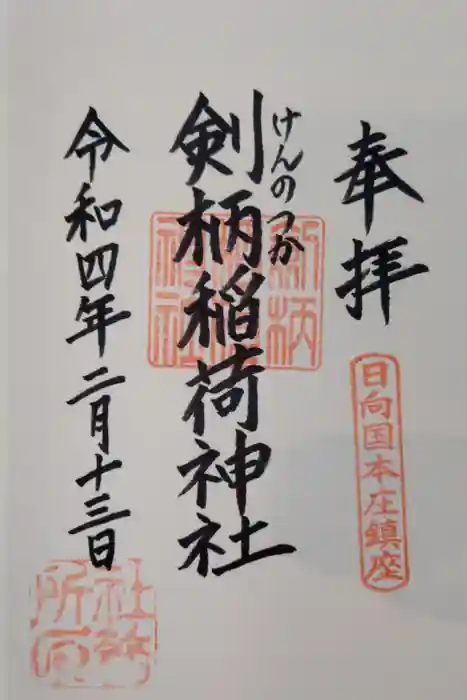 奉拝
日向国本庄鎮座
けんのつか
剣柄稲荷神社
令和四年二月十三日